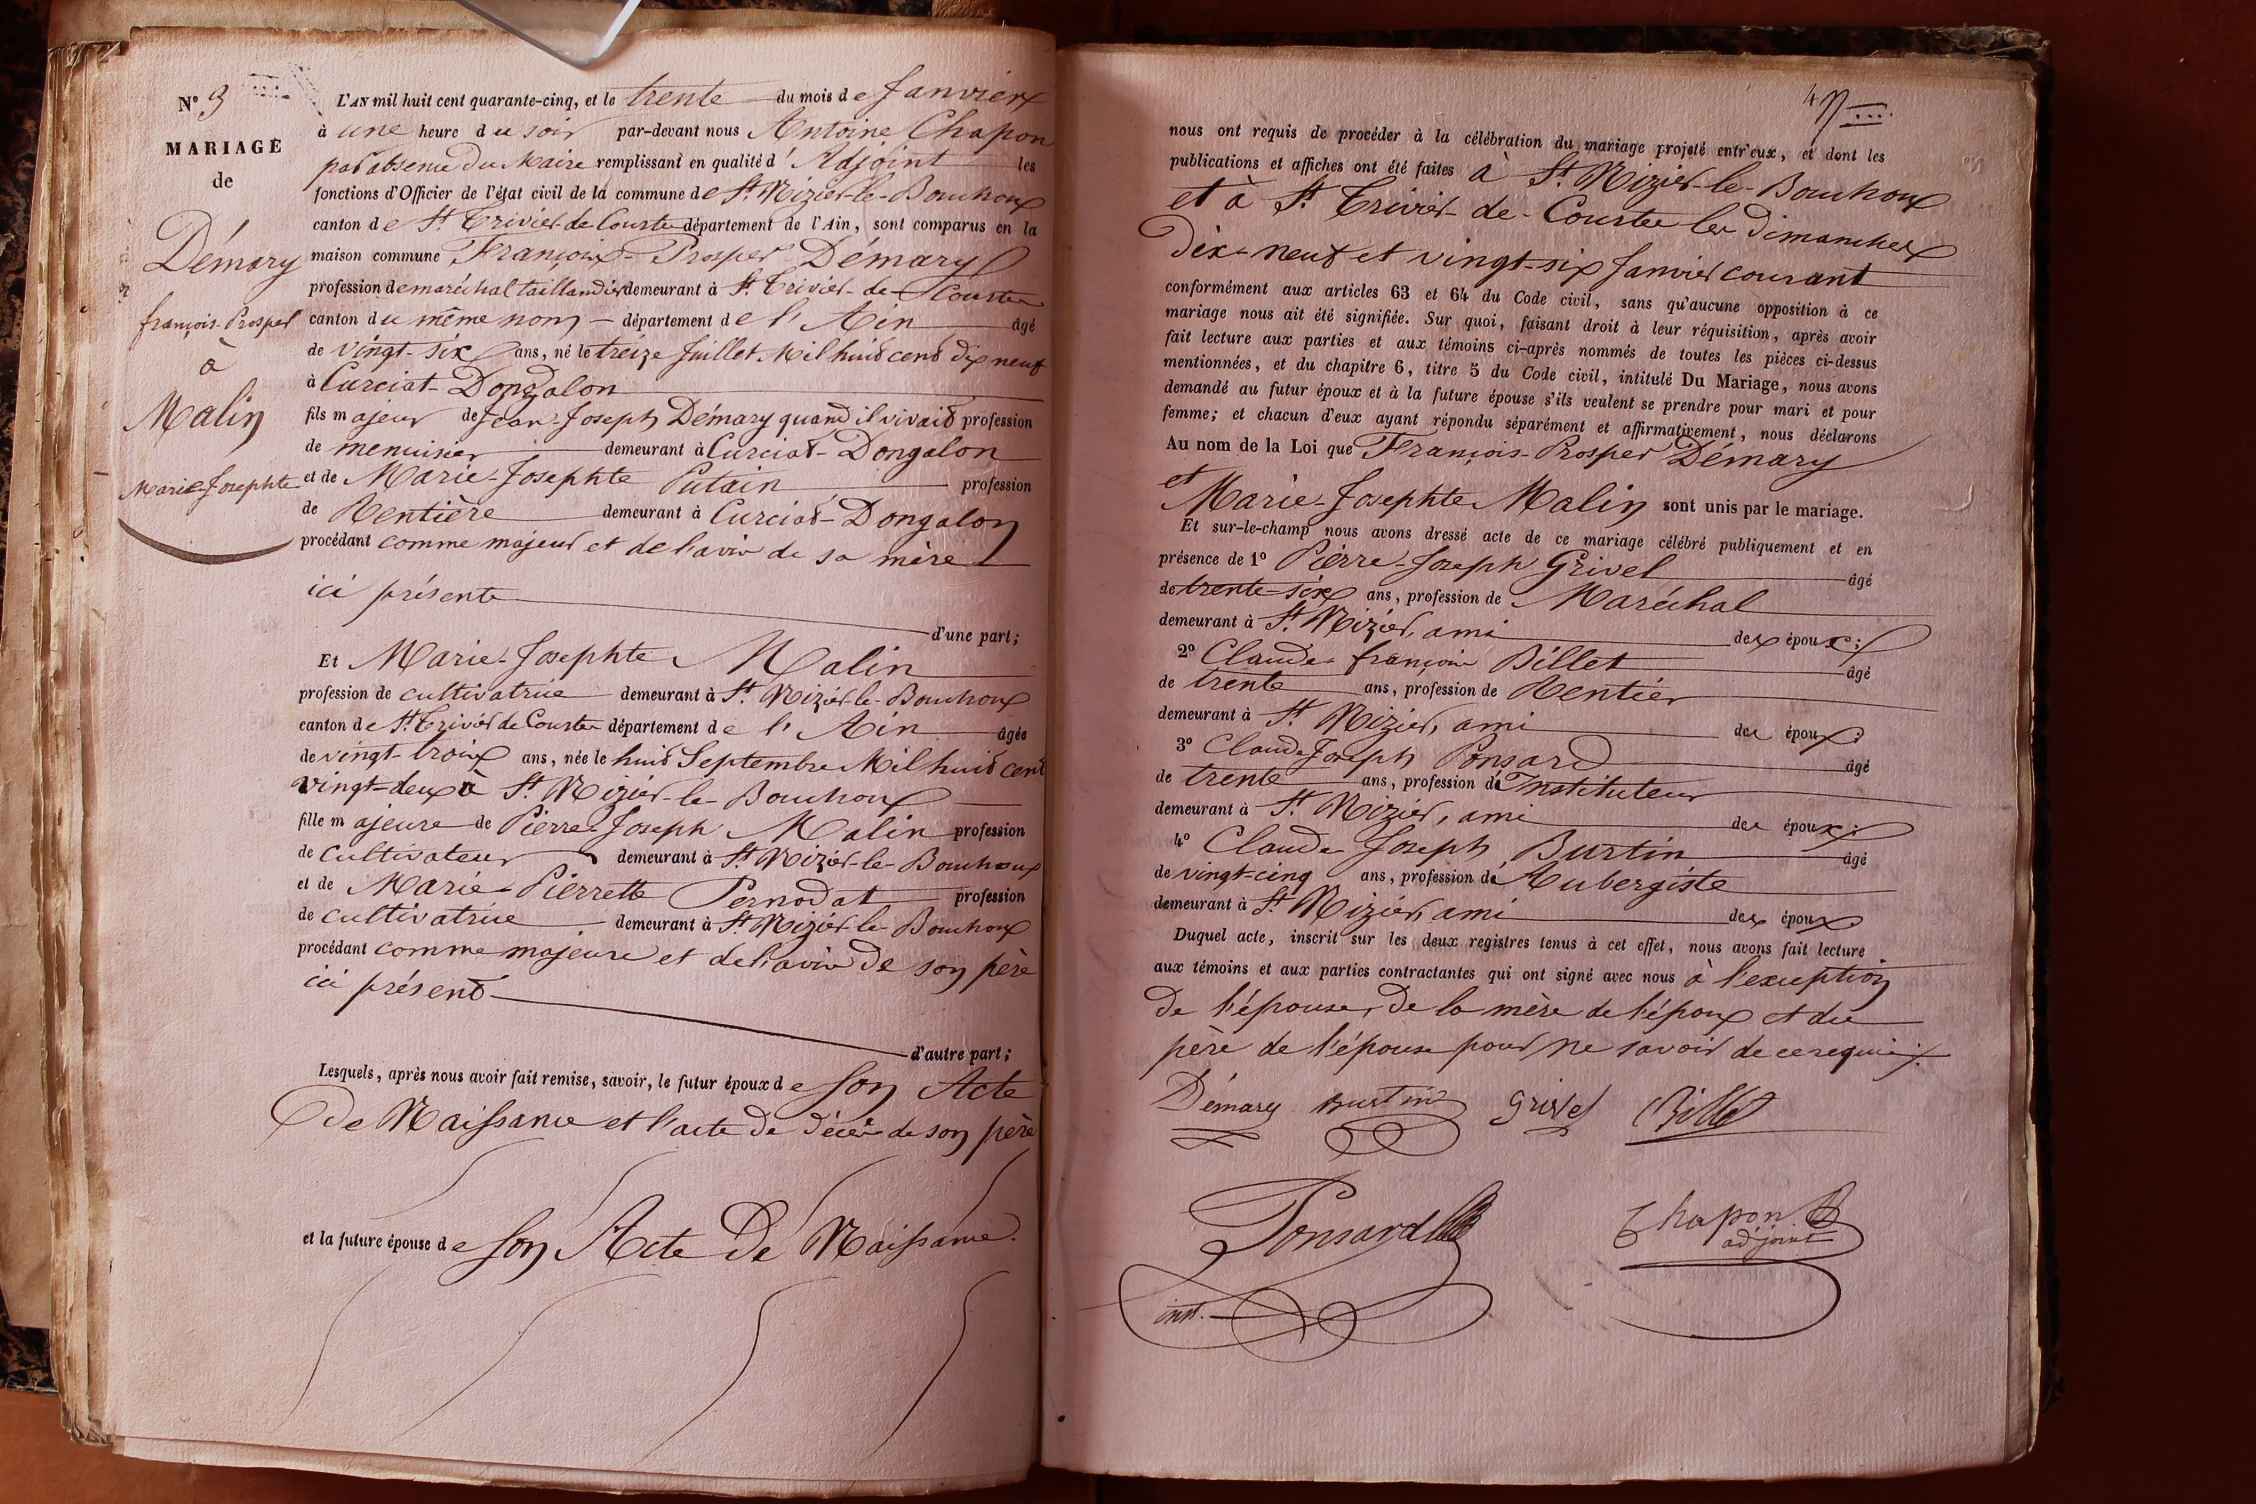 N° 3
MARIAGE
de
Démary
françois-Prosper
à
Malin
Marie-Josephte
L'AN mil huit cent quarante-cinq, et le trente du mois de Janvier
à une heure du soir par-devant nous Antoine Chapon
par absence du Maire remplissant en qualité d'Adjoint les
fonctions d'Officier de l'état civil de la commune de St. Nizier-le-Bouchoux
canton de St. Trivier-de-Courtes département de l'Ain, sont comparus en la
maison commune François-Prosper Démary
profession de maréchal taillandier demeurant à St. Trivier-de-Courtes
canton du même nom département de l'Ain âgé
de vingt-six ans, né le treize Juillet Mil huit cent dix neuf
à Curciat-Dongalon
fils majeur de Jean-Joseph Démary quand il vivait profession
de menuisier demeurant à Curciat-Dongalon
et de Marie-Josephte Putain profession
de Rentière demeurant à Curciat-Dongalon
procédant comme majeur et de l'avis de sa mère
ici présente
d'une part;
Et Marie-Josephte Malin
profession de cultivatrice demeurant à St. Nizier-le-Bouchoux
canton de St. Trivier de Courtes département de l'Ain âgée
de vingt-trois ans, née le huit Septembre Mil huit cent
vingt-deux à St. Nizier-le-Bouchoux
fille majeure de Pierre-Joseph Malin profession
de cultivateur demeurant à St. Nizier-le-Bouchoux
et de Marie-Pierrette Pernodat profession
de cultivatrice demeurant à St. Nizier-le-Bouchoux
procédant comme majeure et de l'avis de son père
ici présent
d'autre part;
Lesquels, après nous avoir fait remise, savoir, le futur époux de son Acte
de Naissance et l'acte de décès de son père
et la future épouse de son Acte de Naissance.
nous ont requis de procéder à la célébration du mariage projeté entr'eux, et dont les
publications et affiches ont été faites à St. Nizier-le-Bouchoux
et à St. Trivier-de-Courtes les dimanches
dix-neuf et vingt-six Janvier courant
conformément aux articles 63 et 64 du Code civil, sans qu'aucune opposition à ce
mariage nous ait été signifiée. Sur quoi, faisant droit à leur réquisition, après avoir
fait lecture aux parties et aux témoins ci-après nommés de toutes les pièces ci-dessus
mentionnées, et du chapitre 6, titre 5 du Code civil, intitulé Du Mariage, nous avons
demandé au futur époux et à la future épouse s'ils veulent se prendre pour mari et pour
femme; et chacun d'eux ayant répondu séparément et affirmativement, nous déclarons
Au nom de la Loi que François-Prosper Démary
et Marie-Josephte Malin sont unis par le mariage.
Et sur-le-champ nous avons dressé acte de ce mariage célébré publiquement et en
présence de 1° Pierre-Joseph Grivel âgé
de trente-six ans, profession de Maréchal
demeurant à St. Nizier, ami des époux;
2° Claude françois Billet âgé
de trente ans, profession de Rentier
demeurant à St. Nizier, ami des époux;
3° Claude Joseph Ponsard âgé
de trente ans, profession de Instituteur
demeurant à St. Nizier, ami des époux;
4° Claude Joseph Burtin âgé
de vingt-cinq ans, profession de Aubergiste
demeurant à St. Nizier, ami des époux
Duquel acte, inscrit sur les deux registres tenus à cet effet, nous avons fait lecture
aux témoins et aux parties contractantes qui ont signé avec nous à l'exception
de l'épouse, de la mère de l'époux et du
père de l'épouse pour ne savoir de ce requis.
Démary Burtin Grivel Billet
Ponsard
inst.
Chapon
adjoint